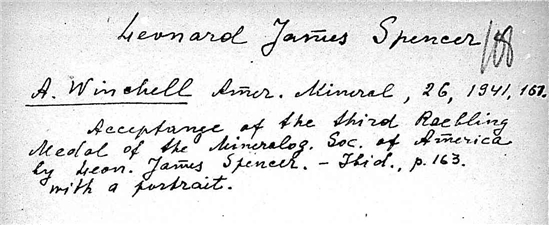 Leonard James Spencer
A. Winchell Amer. Mineral, 26, 1941, 161.
Acceptance of the third Roebling
Medal of the Mineralog. Soc. of America
by Leon. James Spencer. – Ibid., p. 163.
with a portrait.